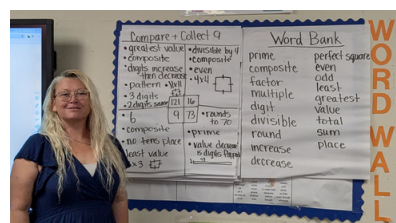 Compare + Collect 9
• greatest value
• composite
• digits increase
then decrease
• pattern
• 3 digits
• 2 digits same
• divisible by 4
• composite
• even
• 4x4
121 16
9 73
6
composite
no tens place
least value
x3
• rounds
to 70
• prime
• value decrease
Word Bank
prime
composite
factor
multiple
digit
divisible
round
increase
decrease
perfect square
even
odd
least
greatest
value
total
sum
place
WORD WALL